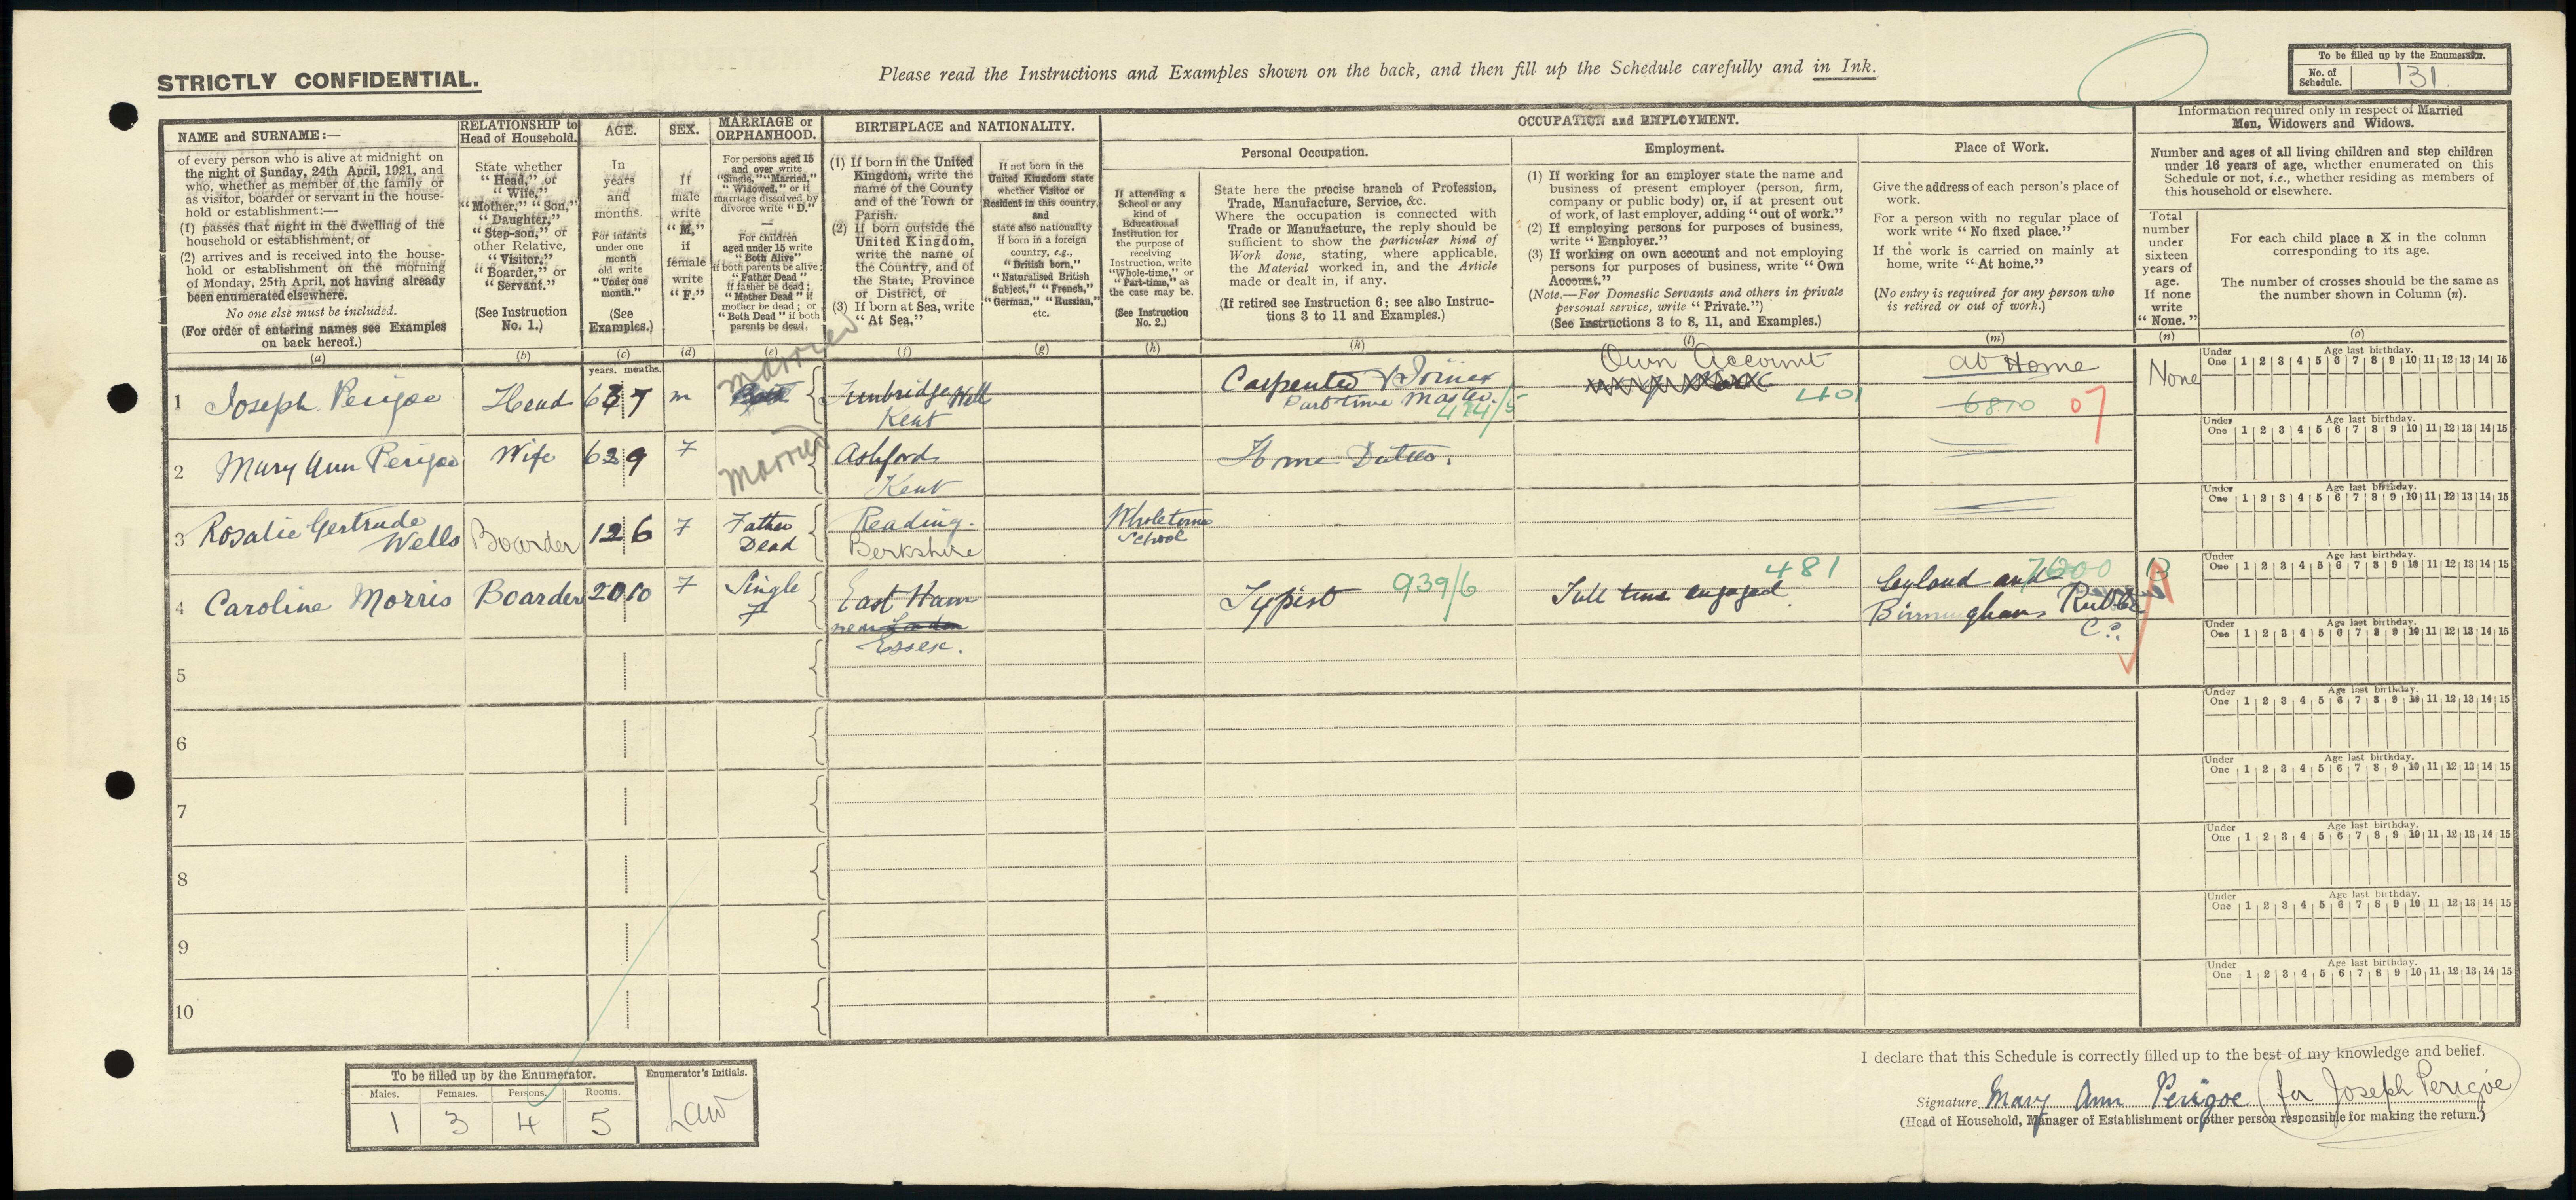 STRICTLY CONFIDENTIAL.
Please read the Instructions and Examples shown on the back, and then fill up the Schedule carefully and in Ink.
To be filled up by the Enumerator.
No. of Schedule. 131
NAME and SURNAME:—
of every person who is alive at midnight on
the night of Sunday, 24th April, 1921, and
who, whether as member of the family or
as visitor, boarder or servant in the house-
hold or establishment:—
(1) passes that night in the dwelling of the
household or establishment, or
(2) arrives and is received into the house-
hold or establishment on the morning
of Monday, 25th April, not having already
been enumerated elsewhere.
No one else must be included.
(For order of entering names see Examples
on back hereof.)
(a)
RELATIONSHIP to
Head of Household.
State whether
"Head," or
"Wife,"
"Mother," "Son,"
"Daughter,"
"Step-son," or
other Relative,
"Visitor,"
"Boarder," or
"Servant."
(See Instruction
No. 1.)
(b)
AGE.
In
years
and
months.
For infants
under one
month
old write
"Under one
month."
(See
Examples.)
(c)
years. months.
SEX.
If
male
write
"M,"
if
female
write
"F."
(d)
MARRIAGE or
ORPHANHOOD.
For persons aged 15
and over write
"Single," "Married,"
"Widowed," or if
marriage dissolved by
divorce write "D."
For children
aged under 15 write
"Both Alive"
if both parents be alive;
"Father Dead"
if father be dead;
"Mother Dead" if
mother be dead; or
"Both Dead" if both
parents be dead.
(e)
BIRTHPLACE and NATIONALITY.
(1) If born in the United
Kingdom, write the
name of the County
and of the Town or
Parish.
(2) If born outside the
United Kingdom,
write the name of
the Country, and of
the State, Province
or District, or
(3) If born at Sea, write
"At Sea."
(f)
If not born in the
United Kingdom state
whether Visitor or
Resident in this country,
and
state also nationality
if born in a foreign
country, e.g.,
"British born,"
"Naturalised British
Subject," "French,"
"German," "Russian,"
etc.
(g)
OCCUPATION and EMPLOYMENT.
If attending a
School or any
kind of
Educational
Institution for
the purpose of
receiving
Instruction, write
"Whole-time," or
"Part-time," as
the case may be.
(See Instruction
No. 2.)
(h)
Personal Occupation.
State here the precise branch of Profession,
Trade, Manufacture, Service, &c.
Where the occupation is connected with
Trade or Manufacture, the reply should be
sufficient to show the particular kind of
Work done, stating, where applicable,
the Material worked in, and the Article
made or dealt in, if any.
(If retired see Instruction 6; see also Instruc-
tions 3 to 11 and Examples.)
(k)
Employment.
(1) If working for an employer state the name and
business of present employer (person, firm,
company or public body) or, if at present out
of work, of last employer, adding "out of work."
(2) If employing persons for purposes of business,
write "Employer."
(3) If working on own account and not employing
persons for purposes of business, write "Own
Account."
(Note.—For Domestic Servants and others in private
personal service, write "Private.")
(See Instructions 3 to 8, 11, and Examples.)
(l)
Place of Work.
Give the address of each person's place of
work.
For a person with no regular place of
work write "No fixed place."
If the work is carried on mainly at
home, write "At home."
(No entry is required for any person who
is retired or out of work.)
(m)
Information required only in respect of Married
Men, Widowers and Widows.
Number and ages of all living children and step children
under 16 years of age, whether enumerated on this
Schedule or not, i.e., whether residing as members of
this household or elsewhere.
Total
number
under
sixteen
years of
age.
If none
write
"None."
(n)
For each child place a X in the column
corresponding to its age.
The number of crosses should be the same as
the number shown in Column (n).
(o)
1 Joseph Perigoe Head 63 7 m Married Tunbridge Well
Kent
Carpenter & Joiner
Part time Master. 414/5
Own Account
401
at Home
6810 07
None
Under One Age last birthday. 1 2 3 4 5 6 7 8 9 10 11 12 13 14 15
2 Mary Ann Perigoe Wife 62 9 F Married Ashford
Kent
Home Duties.
Under One Age last birthday. 1 2 3 4 5 6 7 8 9 10 11 12 13 14 15
3 Rosalie Gertrude
Wells
Boarder 12 6 F Father
Dead
Reading.
Berkshire
Whole time
School
Under One Age last birthday. 1 2 3 4 5 6 7 8 9 10 11 12 13 14 15
4 Caroline Morris Boarder 20 10 F Single
F
East Ham
near London
Essex.
Typist 939/6
Full time engaged 481
Leyland and
Birmingham Rubber
Co.
Under One Age last birthday. 1 2 3 4 5 6 7 8 9 10 11 12 13 14 15
5
Under One Age last birthday. 1 2 3 4 5 6 7 8 9 10 11 12 13 14 15
6
Under One Age last birthday. 1 2 3 4 5 6 7 8 9 10 11 12 13 14 15
7
Under One Age last birthday. 1 2 3 4 5 6 7 8 9 10 11 12 13 14 15
8
Under One Age last birthday. 1 2 3 4 5 6 7 8 9 10 11 12 13 14 15
9
Under One Age last birthday. 1 2 3 4 5 6 7 8 9 10 11 12 13 14 15
10
Under One Age last birthday. 1 2 3 4 5 6 7 8 9 10 11 12 13 14 15
To be filled up by the Enumerator.
Males. Females. Persons. Rooms.
1 3 4 5
Enumerator's Initials.
Law
I declare that this Schedule is correctly filled up to the best of my knowledge and belief.
Signature Mary Ann Perigoe (for Joseph Perigoe
(Head of Household, Manager of Establishment or other person responsible for making the return.)